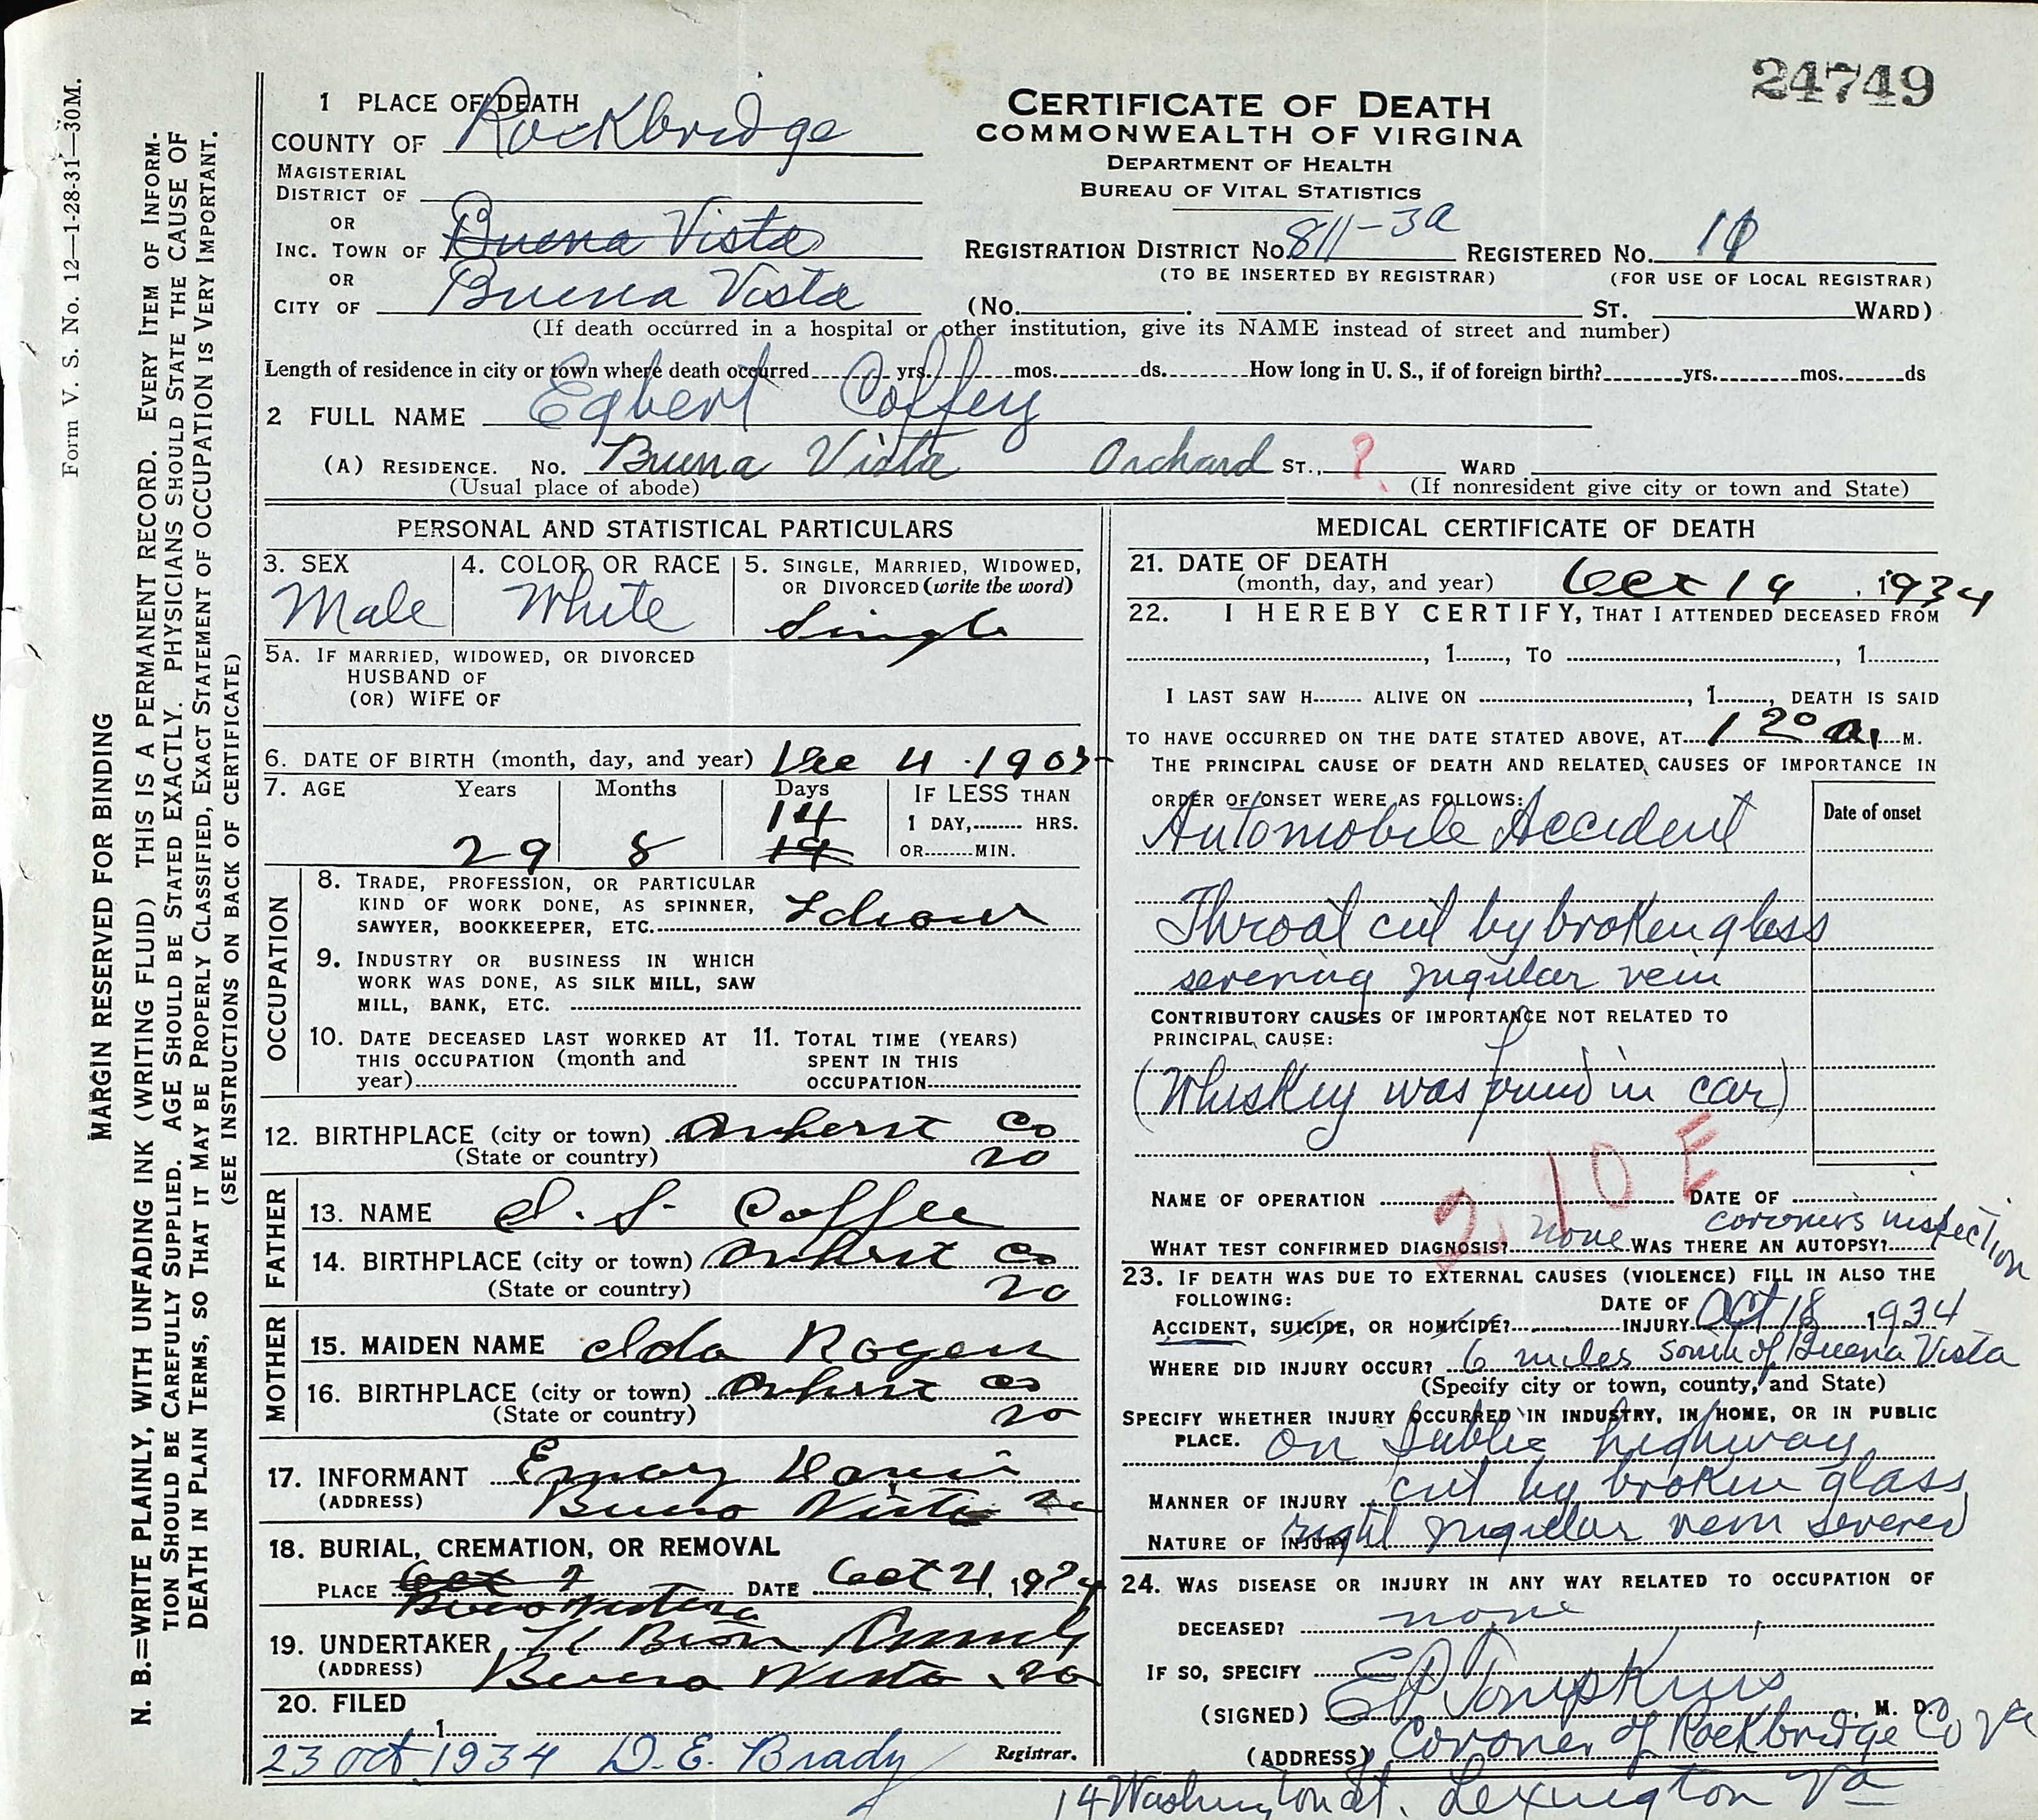 24749
Form V. S. No. 12—1-28-31—30M.
MARGIN RESERVED FOR BINDING
N. B.=WRITE PLAINLY, WITH UNFADING INK (WRITING FLUID) THIS IS A PERMANENT RECORD. EVERY ITEM OF INFORM-
TION SHOULD BE CAREFULLY SUPPLIED. AGE SHOULD BE STATED EXACTLY. PHYSICIANS SHOULD STATE THE CAUSE OF
DEATH IN PLAIN TERMS, SO THAT IT MAY BE PROPERLY CLASSIFIED, EXACT STATEMENT OF OCCUPATION IS VERY IMPORTANT.
(SEE INSTRUCTIONS ON BACK OF CERTIFICATE)
CERTIFICATE OF DEATH
COMMONWEALTH OF VIRGINA
DEPARTMENT OF HEALTH
BUREAU OF VITAL STATISTICS
1 PLACE OF DEATH
COUNTY OF Rockbridge
MAGISTERIAL
DISTRICT OF
OR
INC. TOWN OF Buena Vista
OR
CITY OF Buena Vista
REGISTRATION DISTRICT No. 811-3a REGISTERED No. 10
(TO BE INSERTED BY REGISTRAR) (FOR USE OF LOCAL REGISTRAR)
(No. ST. WARD)
(If death occurred in a hospital or other institution, give its NAME instead of street and number)
Length of residence in city or town where death occurred yrs. mos. ds. How long in U. S., if of foreign birth? yrs. mos. ds
2 FULL NAME Egbert Coffey
(A) RESIDENCE. No. Buena Vista Orchard ST., ? WARD
(Usual place of abode) (If nonresident give city or town and State)
PERSONAL AND STATISTICAL PARTICULARS
3. SEX 4. COLOR OR RACE 5. SINGLE, MARRIED, WIDOWED,
OR DIVORCED (write the word)
Male White Single
5A. IF MARRIED, WIDOWED, OR DIVORCED
HUSBAND OF
(OR) WIFE OF
6. DATE OF BIRTH (month, day, and year) Dec 4 1905
7. AGE Years Months Days IF LESS THAN
1 DAY, HRS.
OR MIN.
29 8 14 19
OCCUPATION
8. TRADE, PROFESSION, OR PARTICULAR
KIND OF WORK DONE, AS SPINNER,
SAWYER, BOOKKEEPER, ETC.
9. INDUSTRY OR BUSINESS IN WHICH
WORK WAS DONE, AS SILK MILL, SAW
MILL, BANK, ETC.
10. DATE DECEASED LAST WORKED AT
THIS OCCUPATION (month and
year)
11. TOTAL TIME (YEARS)
SPENT IN THIS
OCCUPATION
12. BIRTHPLACE (city or town) Amherst Co
(State or country) Va
FATHER
13. NAME S. S. Coffee
14. BIRTHPLACE (city or town) Amherst Co
(State or country) Va
MOTHER
15. MAIDEN NAME Ida Rogers
16. BIRTHPLACE (city or town) Amherst Co
(State or country) Va
17. INFORMANT Emory Davis
(ADDRESS) Buena Vista Va
18. BURIAL, CREMATION, OR REMOVAL
PLACE Buena Vista Va DATE Oct 21, 1934
19. UNDERTAKER
(ADDRESS) Buena Vista Va
20. FILED
1
23 Oct 1934 D. E. Brady Registrar.
MEDICAL CERTIFICATE OF DEATH
21. DATE OF DEATH
(month, day, and year) Oct 19, 1934
22. I HEREBY CERTIFY, THAT I ATTENDED DECEASED FROM
, 1 , TO , 1
I LAST SAW H ALIVE ON , 1 , DEATH IS SAID
TO HAVE OCCURRED ON THE DATE STATED ABOVE, AT 1 20 a. M.
THE PRINCIPAL CAUSE OF DEATH AND RELATED CAUSES OF IMPORTANCE IN
ORDER OF ONSET WERE AS FOLLOWS: Date of onset
Automobile Accident
Throat cut by broken glass
severing jugular vein
CONTRIBUTORY CAUSES OF IMPORTANCE NOT RELATED TO
PRINCIPAL CAUSE:
(Whiskey was found in car)
210 E
NAME OF OPERATION DATE OF
WHAT TEST CONFIRMED DIAGNOSIS? none WAS THERE AN AUTOPSY? coroners inspection
23. IF DEATH WAS DUE TO EXTERNAL CAUSES (VIOLENCE) FILL IN ALSO THE
FOLLOWING:
ACCIDENT, SUICIDE, OR HOMICIDE? DATE OF INJURY Oct 18 1934
WHERE DID INJURY OCCUR? 6 miles south of Buena Vista
(Specify city or town, county, and State)
SPECIFY WHETHER INJURY OCCURRED IN INDUSTRY, IN HOME, OR IN PUBLIC
PLACE. On public highway
MANNER OF INJURY cut by broken glass
NATURE OF INJURY right jugular vein severed
24. WAS DISEASE OR INJURY IN ANY WAY RELATED TO OCCUPATION OF
DECEASED? none
IF SO, SPECIFY
(SIGNED) EP Tompkins M. D.
(ADDRESS) Coroner of Rockbridge Co Va
14 Washington St. Lexington Va